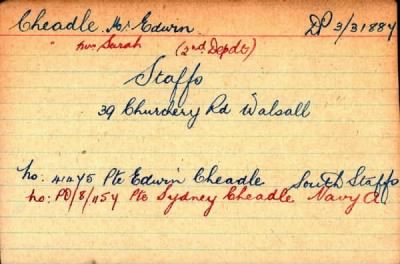 Cheadle. Mr Edwin. DP 3/31884
" Mrs Sarah (2nd Depdt)
Staffs
39 Churchery Rd Walsall
No: 41275 Pte Edwin Cheadle South Staffs
No: PO/8/1154 Pte Sydney Cheadle Navy A